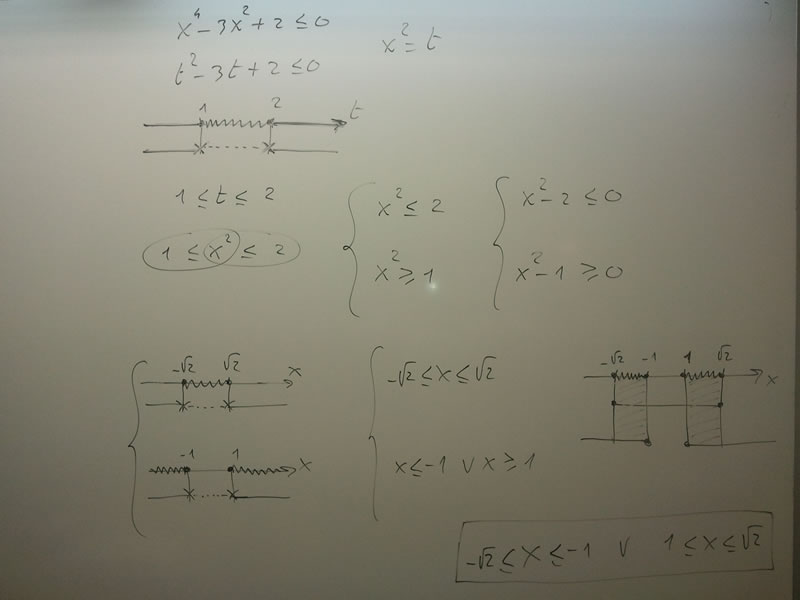 x⁴ - 3x² + 2 ≤ 0
x² = t
t² - 3t + 2 ≤ 0
1 2 t
1 ≤ t ≤ 2
1 ≤ x² ≤ 2
x² ≤ 2
x² ≥ 1
x² - 2 ≤ 0
x² - 1 ≥ 0
-√2 √2 x
-1 1 x
-√2 ≤ x ≤ √2
x ≤ -1 ∨ x ≥ 1
-√2 -1 1 √2 x
-√2 ≤ x ≤ -1 ∨ 1 ≤ x ≤ √2